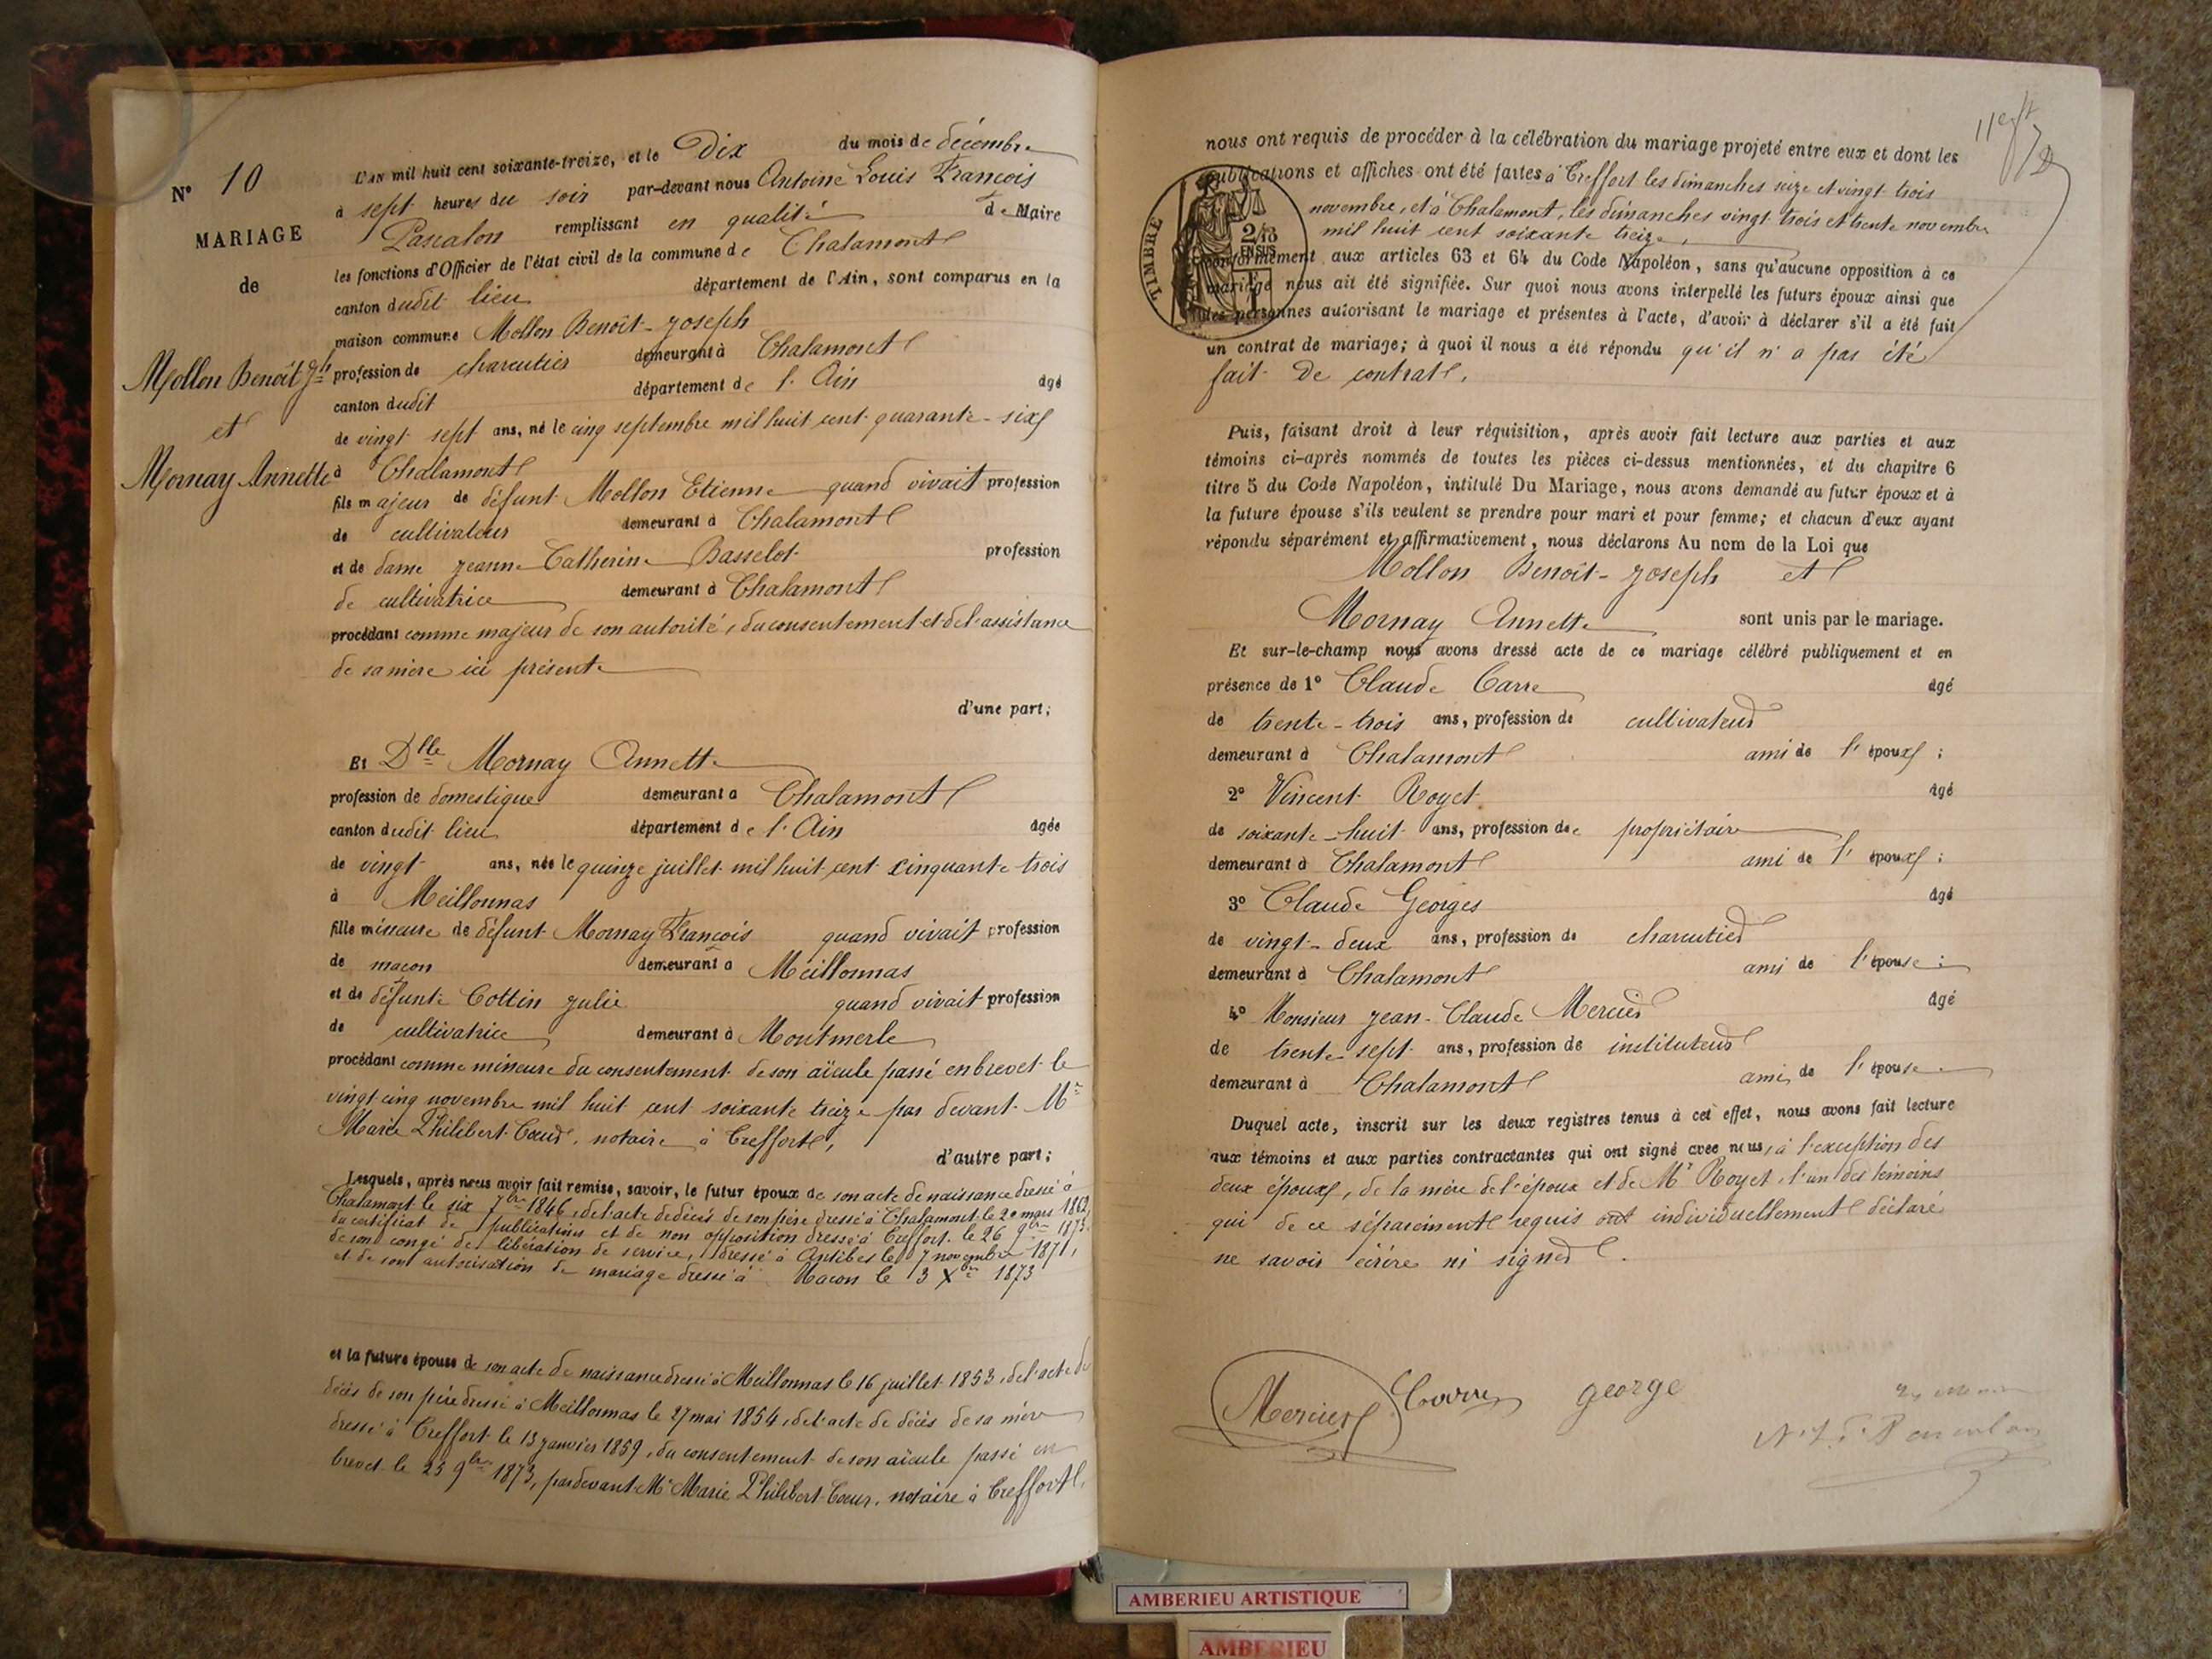 N° 10
MARIAGE
de
Mollon Benoît Jh
et
Mornay Annette
L'an mil huit cent soixante-treize, et le Dix du mois de décembre
à sept heures du soir par-devant nous Antoine Louis François
Pascalon remplissant en qualité de Maire
les fonctions d'Officier de l'état civil de la commune de Chalamont
canton dudit lieu département de l'Ain, sont comparus en la
maison commune Mollon Benoît-Joseph
profession de charcutier demeurant à Chalamont
canton dudit département de l'Ain âgé
de vingt sept ans, né le cinq septembre mil huit cent quarante-six
à Chalamont
fils majeur de défunt Mollon Etienne quand vivait profession
de cultivateur demeurant à Chalamont
et de dame Jeanne Catherine Basselot profession
de cultivatrice demeurant à Chalamont
procédant comme majeur de son autorité, du consentement et de l'assistance
de sa mère ici présente
d'une part;
Et Dlle Mornay Annette
profession de domestique demeurant à Chalamont
canton dudit lieu département de l'Ain âgée
de vingt ans, née le quinze juillet mil huit cent cinquante trois
à Meillonnas
fille mineure de défunt Mornay François quand vivait profession
de maçon demeurant à Meillonnas
et de défunte Cottin Julie quand vivait profession
de cultivatrice demeurant à Montmerle
procédant comme mineure du consentement de son aïeule passé en brevet le
vingt cinq novembre mil huit cent soixante treize par devant Me
Marie Philibert Cœur, notaire à Treffort,
d'autre part;
Lesquels, après nous avoir fait remise, savoir, le futur époux de son acte de naissance dressé à
Chalamont le six 7bre 1846, de l'acte de décès de son père dressé à Chalamont le 20 mars 1862,
du certificat de publications et de non opposition dressé à Treffort le 26 9bre 1873,
de son congé de libération de service, dressé à Antibes le 7 novembre 1871,
et de son autorisation de mariage dressé à Macon le 3 Xbre 1873
et la future épouse de son acte de naissance dressé à Meillonnas le 16 juillet 1853, de l'acte de
décès de son père dressé à Meillonnas le 27 mai 1854, de l'acte de décès de sa mère
dressé à Treffort le 13 janvier 1859, du consentement de son aïeule passé en
brevet le 25 9bre 1873, par devant Me Marie Philibert Cœur, notaire à Treffort,
nous ont requis de procéder à la célébration du mariage projeté entre eux et dont les
publications et affiches ont été faites à Treffort les dimanches seize et vingt trois
novembre, et à Chalamont, les dimanches vingt trois et trente novembre
mil huit cent soixante treize,
conformément aux articles 63 et 64 du Code Napoléon, sans qu'aucune opposition à ce
mariage nous ait été signifiée. Sur quoi nous avons interpellé les futurs époux ainsi que
les personnes autorisant le mariage et présentes à l'acte, d'avoir à déclarer s'il a été fait
un contrat de mariage; à quoi il nous a été répondu qu'il n'a pas été
fait de contrat.
TIMBRE
2/10
EN SUS
Puis, faisant droit à leur réquisition, après avoir fait lecture aux parties et aux
témoins ci-après nommés de toutes les pièces ci-dessus mentionnées, et du chapitre 6
titre 5 du Code Napoléon, intitulé Du Mariage, nous avons demandé au futur époux et à
la future épouse s'ils veulent se prendre pour mari et pour femme; et chacun d'eux ayant
répondu séparément et affirmativement, nous déclarons Au nom de la Loi que
Mollon Benoît-Joseph et
Mornay Annette sont unis par le mariage.
Et sur-le-champ nous avons dressé acte de ce mariage célébré publiquement et en
présence de 1° Claude Carre âgé
de trente-trois ans, profession de cultivateur
demeurant à Chalamont ami de l'époux;
2° Vincent Royet âgé
de soixante-huit ans, profession de propriétaire
demeurant à Chalamont ami de l'époux;
3° Claude Georges âgé
de vingt-deux ans, profession de charcutier
demeurant à Chalamont ami de l'épouse;
4° Monsieur Jean-Claude Mercier âgé
de trente-sept ans, profession de instituteur
demeurant à Chalamont ami de l'épouse
Duquel acte, inscrit sur les deux registres tenus à cet effet, nous avons fait lecture
aux témoins et aux parties contractantes qui ont signé avec nous, à l'exception des
deux époux, de la mère de l'époux et de Mr Royet, l'un des témoins
qui de ce séparément requis ont individuellement déclaré
ne savoir écrire ni signer.
Mercier Carre george
AMBERIEU ARTISTIQUE
AMBERIEU